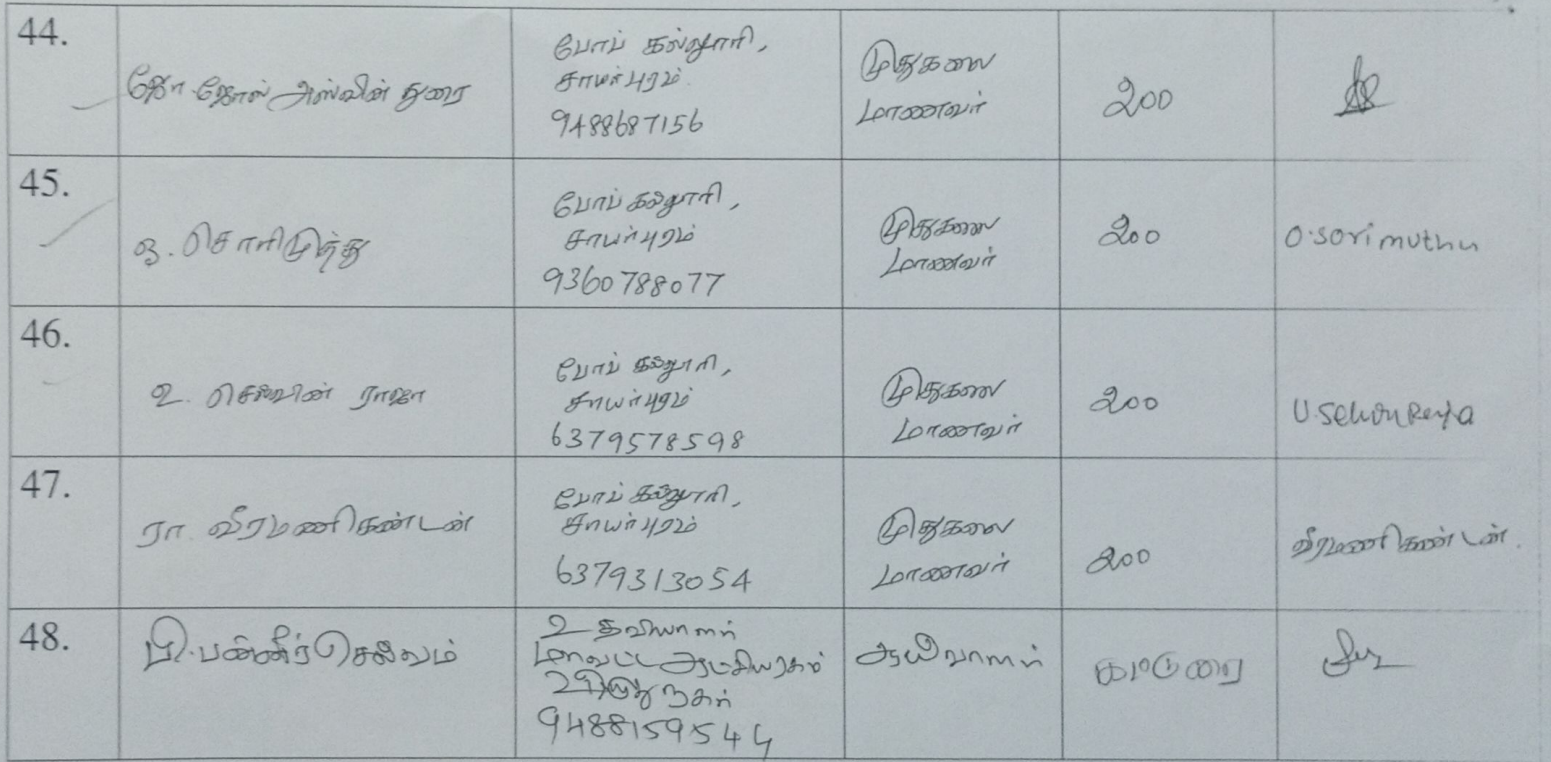 44.
ஜோ.ஜோஸ் அஸ்வின் துரை
போப் கல்லூரி,
சாயர்புரம்.
9488687156
முதுகலை
மாணவர்
200
45.
ஓ. சொரிமுத்து
போப் கல்லூரி,
சாயர்புரம்
9360788077
முதுகலை
மாணவர்
200
O.sorimuthu
46.
உ. செல்வின் ராஜா
போப் கல்லூரி,
சாயர்புரம்
6379578598
முதுகலை
மாணவர்
200
47.
ரா. வீரமணிகண்டன்
போப் கல்லூரி,
சாயர்புரம்
6379313054
முதுகலை
மாணவர்
200
வீரமணிகண்டன்.
48.
பி.பன்னீர்செல்வம்
உதவியாளர்
மாவட்ட ஆட்சியரகம்
விருதுநகர்
9488159544
ஆய்வாளர்
கட்டுரை